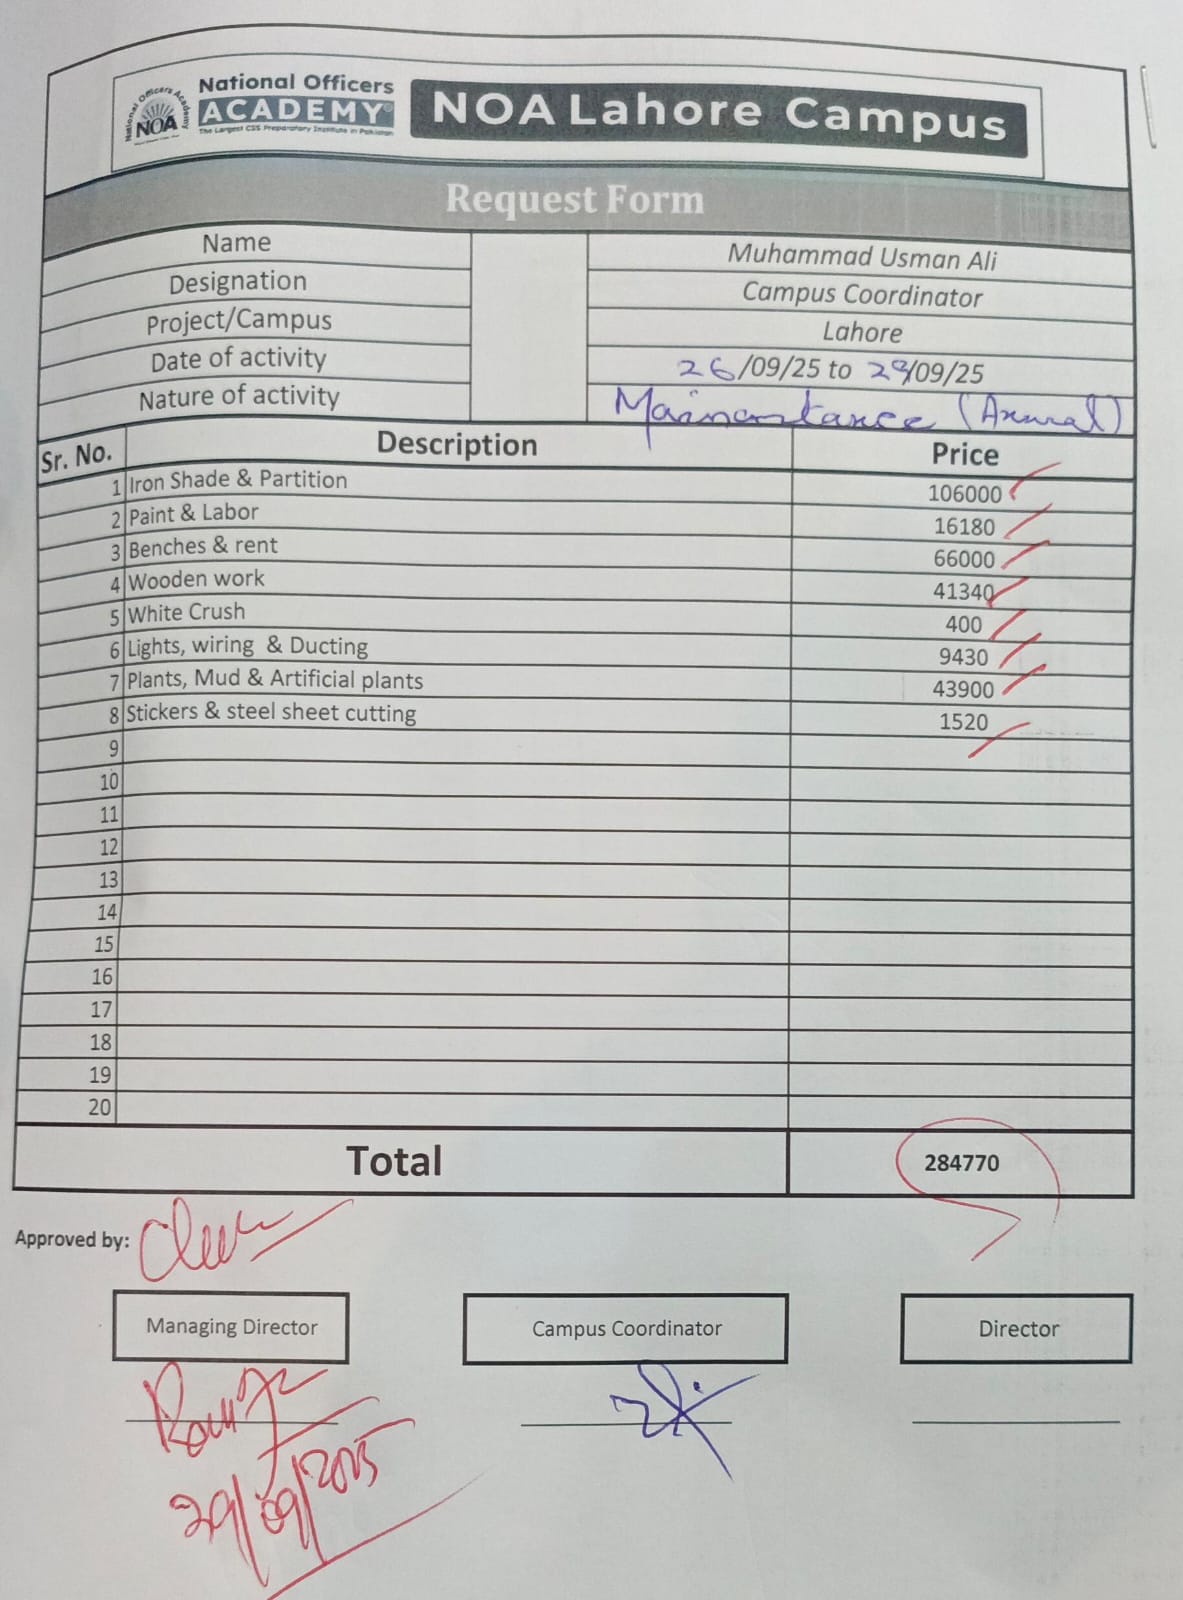 National Officers Academy
NOA
National Officers
ACADEMY
The Largest CSS Preparatory Institute in Pakistan
NOA Lahore Campus
Request Form
Name Muhammad Usman Ali
Designation Campus Coordinator
Project/Campus Lahore
Date of activity 26/09/25 to 29/09/25
Nature of activity (Annual)
Sr. No. Description Price
1 Iron Shade & Partition 106000
2 Paint & Labor 16180
3 Benches & rent 66000
4 Wooden work 41340
5 White Crush 400
6 Lights, wiring & Ducting 9430
7 Plants, Mud & Artificial plants 43900
8 Stickers & steel sheet cutting 1520
9
10
11
12
13
14
15
16
17
18
19
20
Total 284770
Approved by:
Managing Director Campus Coordinator Director
29/09/2025